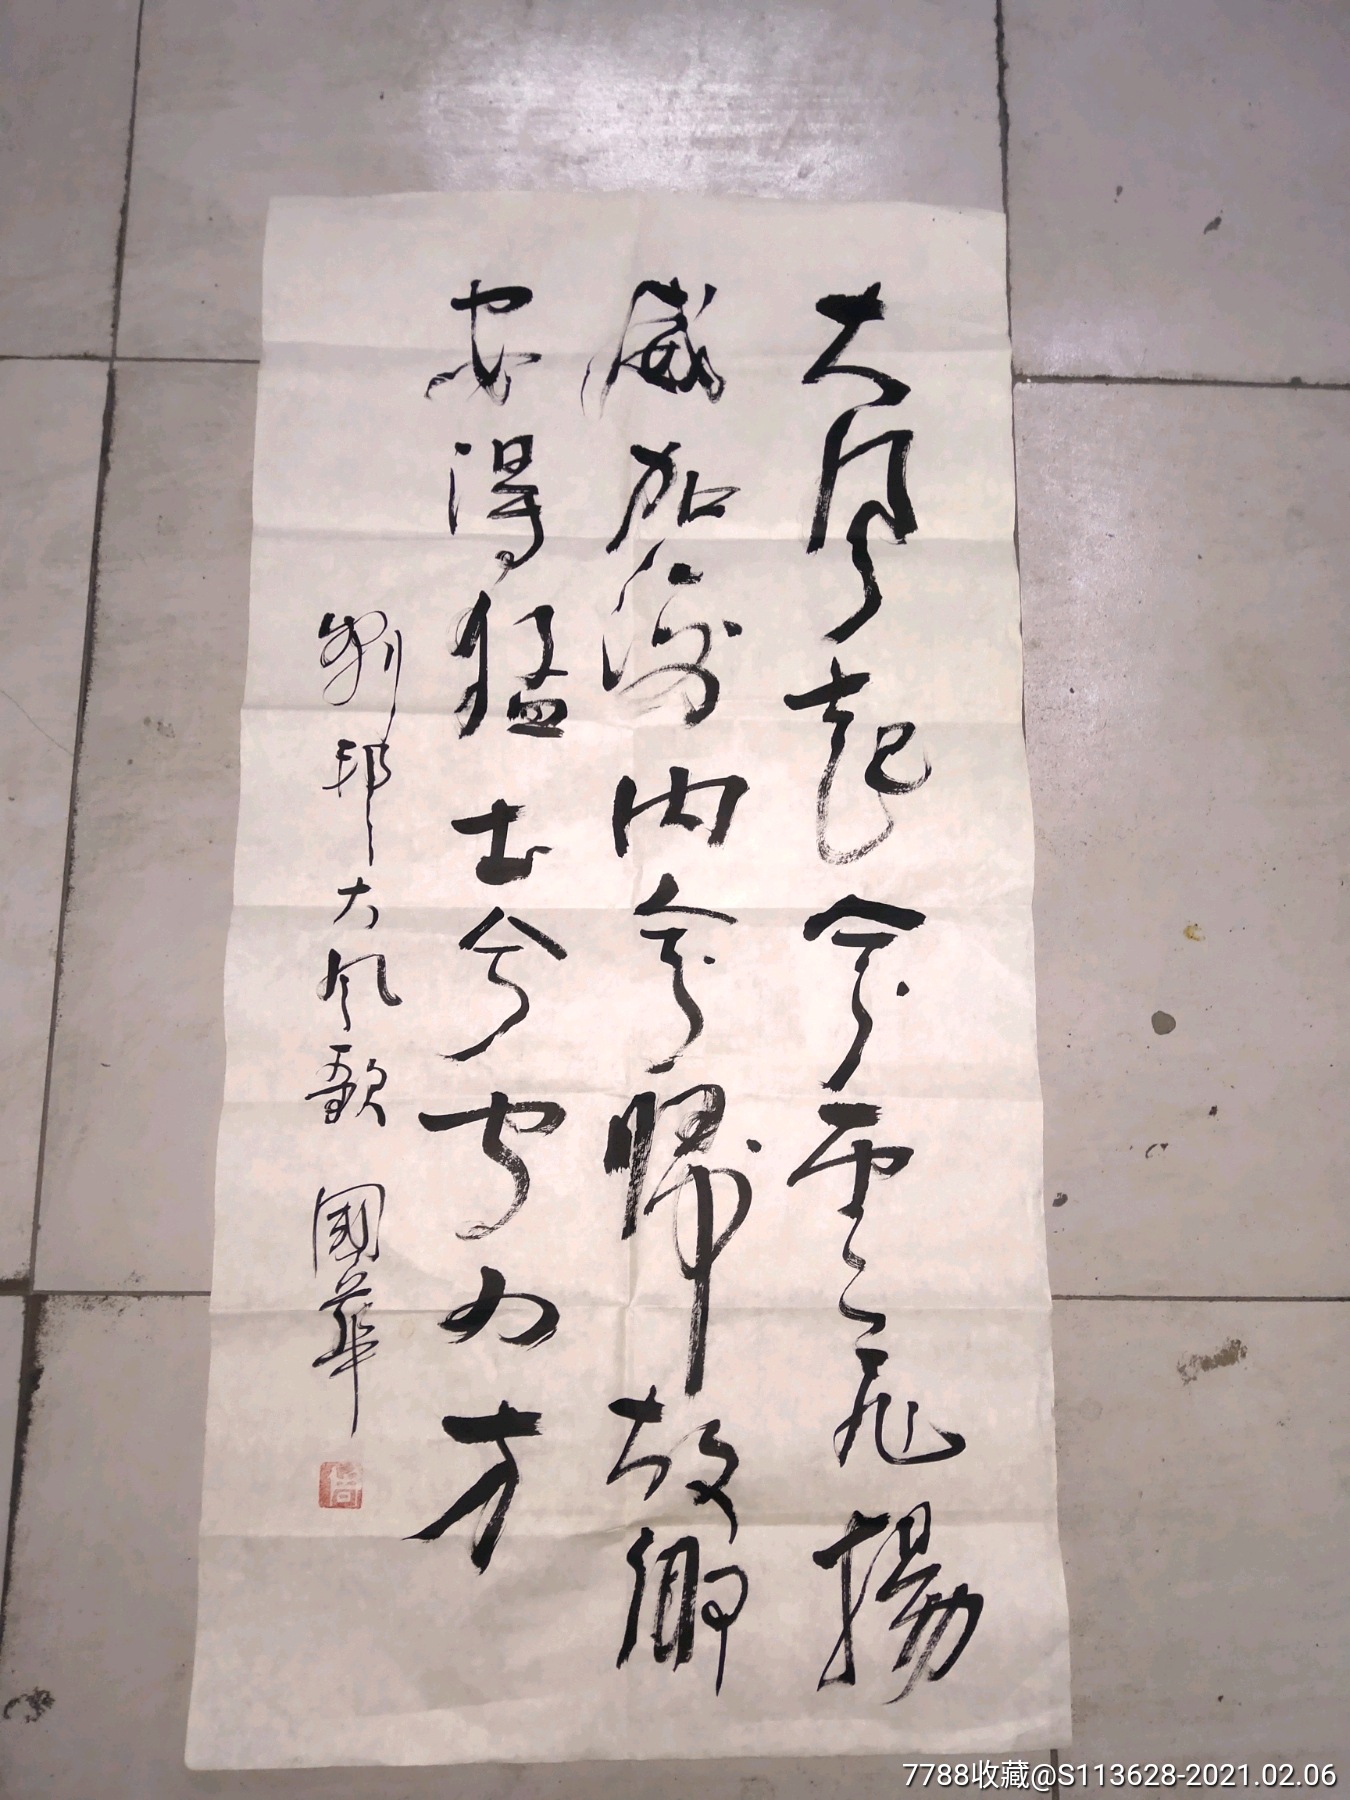 大風起兮雲飛揚
威加海内兮歸故鄉
安得猛士兮守四方
劉邦大风歌 國華
7788收藏@S113628-2021.02.06